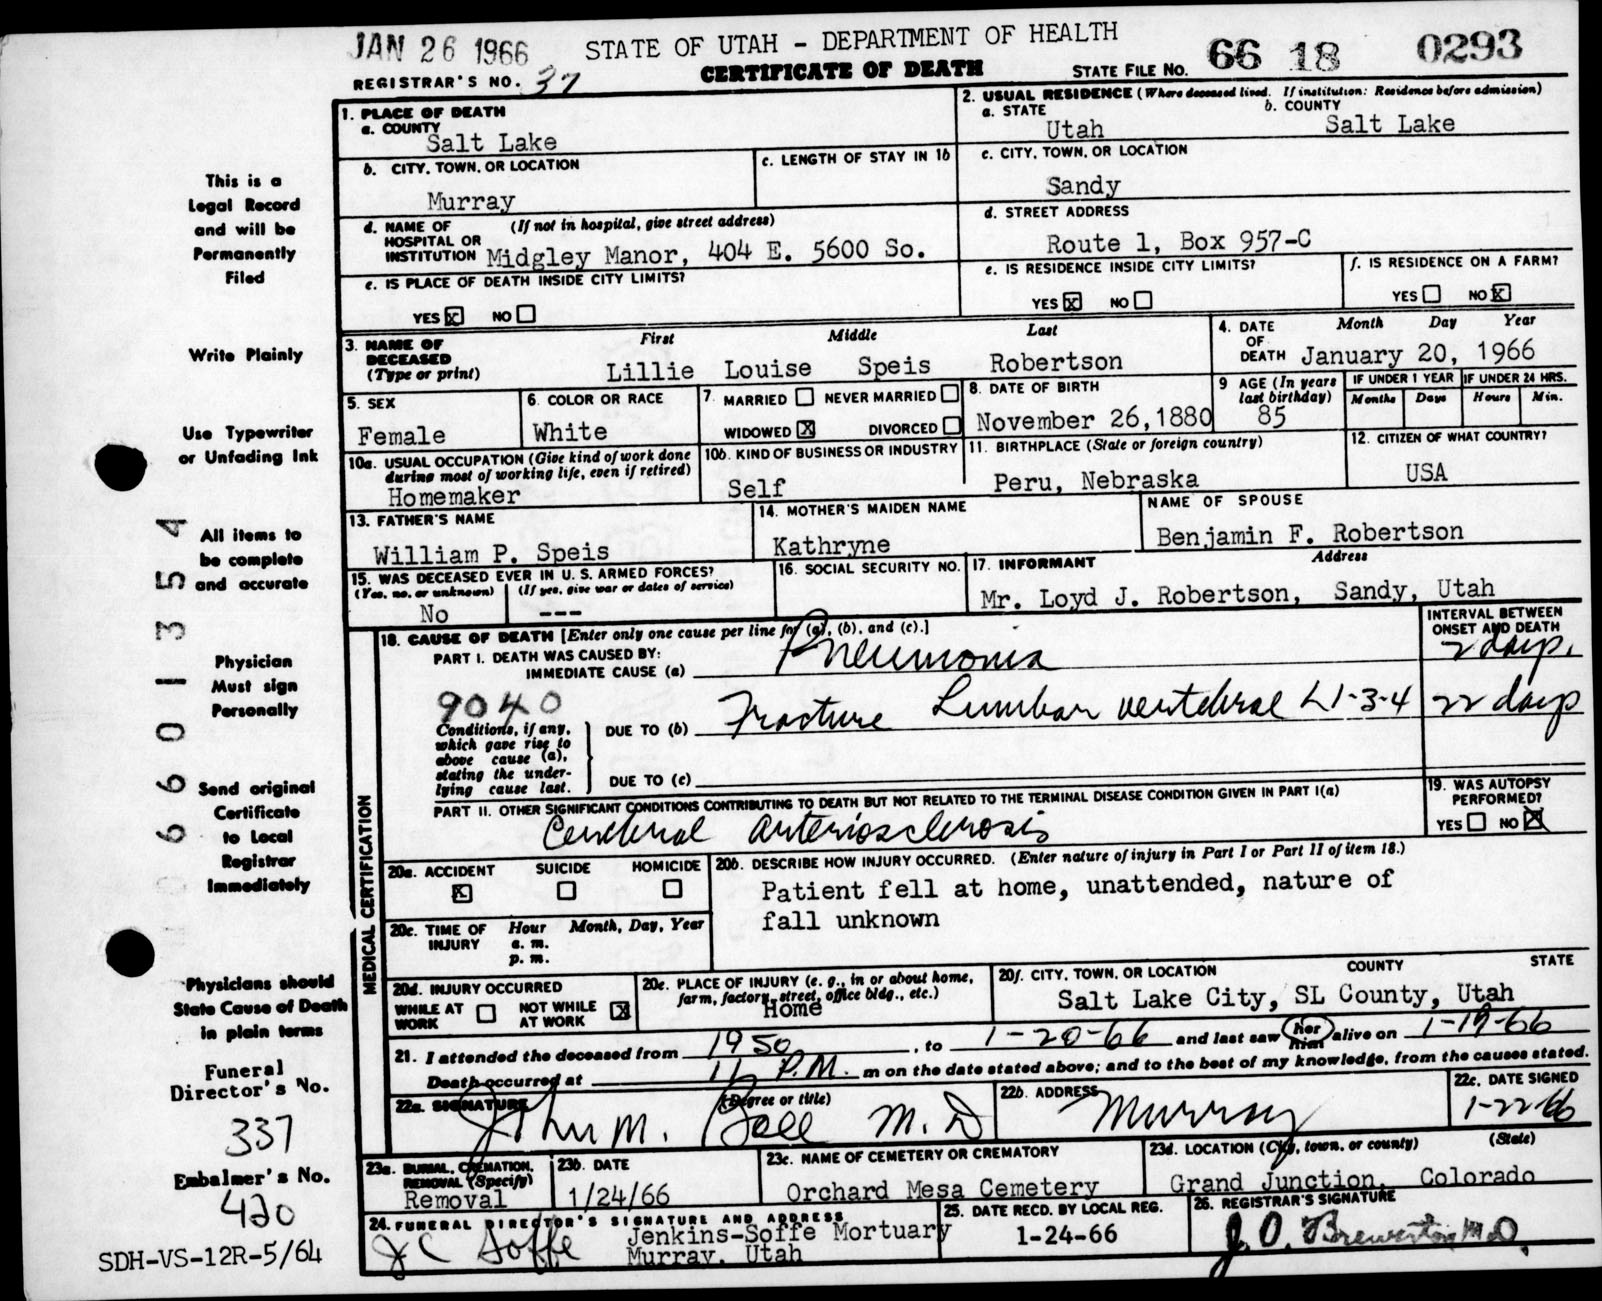 JAN 26 1966
STATE OF UTAH - DEPARTMENT OF HEALTH
CERTIFICATE OF DEATH
REGISTRAR'S NO. 37
STATE FILE NO. 66 18 0293
1. PLACE OF DEATH
a. COUNTY
Salt Lake
2. USUAL RESIDENCE (Where deceased lived. If institution: Residence before admission)
a. STATE
Utah
b. COUNTY
Salt Lake
b. CITY, TOWN, OR LOCATION
Murray
c. LENGTH OF STAY IN 1b
c. CITY, TOWN, OR LOCATION
Sandy
d. NAME OF HOSPITAL OR INSTITUTION (If not in hospital, give street address)
Midgley Manor, 404 E. 5600 So.
d. STREET ADDRESS
Route 1, Box 957-C
e. IS PLACE OF DEATH INSIDE CITY LIMITS?
YES [X] NO [ ]
e. IS RESIDENCE INSIDE CITY LIMITS?
YES [X] NO [ ]
f. IS RESIDENCE ON A FARM?
YES [ ] NO [X]
3. NAME OF DECEASED (Type or print)
First Middle Last
Lillie Louise Speis Robertson
4. DATE OF DEATH
Month Day Year
January 20, 1966
5. SEX
Female
6. COLOR OR RACE
White
7. MARRIED [ ] NEVER MARRIED [ ]
WIDOWED [X] DIVORCED [ ]
8. DATE OF BIRTH
November 26,1880
9 AGE (In years last birthday)
85
IF UNDER 1 YEAR
Months Days
IF UNDER 24 HRS.
Hours Min.
10a. USUAL OCCUPATION (Give kind of work done during most of working life, even if retired)
Homemaker
10b. KIND OF BUSINESS OR INDUSTRY
Self
11. BIRTHPLACE (State or foreign country)
Peru, Nebraska
12. CITIZEN OF WHAT COUNTRY?
USA
13. FATHER'S NAME
William P. Speis
14. MOTHER'S MAIDEN NAME
Kathryne
NAME OF SPOUSE
Benjamin F. Robertson
15. WAS DECEASED EVER IN U. S. ARMED FORCES?
(Yes, no, or unknown) (If yes, give war or dates of service)
No ---
16. SOCIAL SECURITY NO.
17. INFORMANT Address
Mr. Loyd J. Robertson, Sandy, Utah
MEDICAL CERTIFICATION
18. CAUSE OF DEATH [Enter only one cause per line for (a), (b), and (c).]
INTERVAL BETWEEN ONSET AND DEATH
PART I. DEATH WAS CAUSED BY:
IMMEDIATE CAUSE (a) Pneumonia 2 days.
9040
Conditions, if any, which gave rise to above cause (a), stating the underlying cause last.
DUE TO (b) Fracture Lumbar vertebrae L1-3-4 22 days
DUE TO (c)
PART II. OTHER SIGNIFICANT CONDITIONS CONTRIBUTING TO DEATH BUT NOT RELATED TO THE TERMINAL DISEASE CONDITION GIVEN IN PART I(a)
Cerebral arteriosclerosis
19. WAS AUTOPSY PERFORMED?
YES [ ] NO [X]
20a. ACCIDENT [X] SUICIDE [ ] HOMICIDE [ ]
20b. DESCRIBE HOW INJURY OCCURRED. (Enter nature of injury in Part I or Part II of item 18.)
Patient fell at home, unattended, nature of
fall unknown
20c. TIME OF INJURY Hour Month, Day, Year
a. m.
p. m.
20d. INJURY OCCURRED
WHILE AT WORK [ ] NOT WHILE AT WORK [X]
20e. PLACE OF INJURY (e. g., in or about home, farm, factory, street, office bldg., etc.)
Home
20f. CITY, TOWN, OR LOCATION COUNTY STATE
Salt Lake City, SL County, Utah
21. I attended the deceased from 1950, to 1-20-66 and last saw her him alive on 1-19-66
Death occurred at 11 P.M. m on the date stated above; and to the best of my knowledge, from the causes stated.
22a. SIGNATURE (Degree or title)
John M. Ball M.D
22b. ADDRESS
Murray
22c. DATE SIGNED
1-22-66
23a. BURIAL, CREMATION, REMOVAL (Specify)
Removal
23b. DATE
1/24/66
23c. NAME OF CEMETERY OR CREMATORY
Orchard Mesa Cemetery
23d. LOCATION (City, town, or county) (State)
Grand Junction, Colorado
24. FUNERAL DIRECTOR'S SIGNATURE AND ADDRESS
J C Soffe Jenkins-Soffe Mortuary
Murray, Utah
25. DATE RECD. BY LOCAL REG.
1-24-66
26. REGISTRAR'S SIGNATURE
J. O. Brewerton M.D.
This is a
Legal Record
and will be
Permanently
Filed
Write Plainly
Use Typewriter
or Unfading Ink
All items to
be complete
and accurate
Physician
Must sign
Personally
Send original
Certificate
to Local
Registrar
Immediately
Physicians should
State Cause of Death
in plain terms
Funeral
Director's No.
337
Embalmer's No.
420
SDH-VS-12R-5/64
066013 54